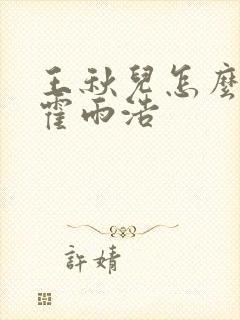 王秋兒怎麼
霍雨浩
許婧